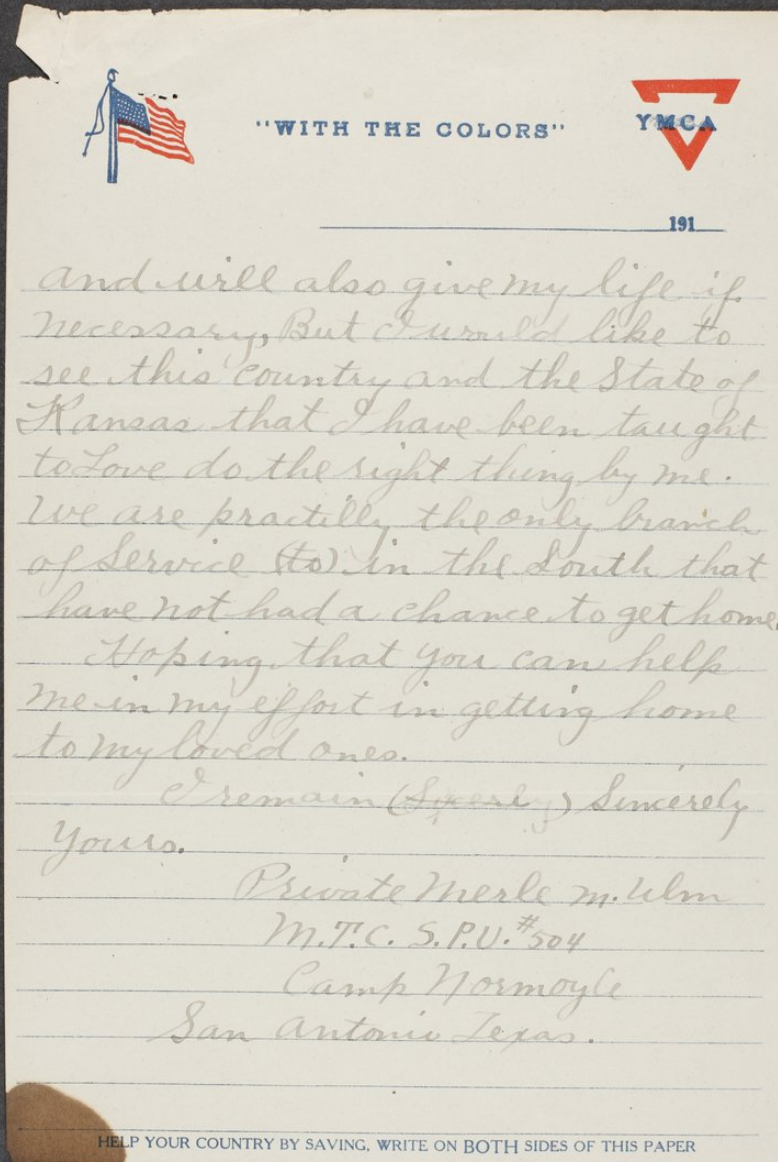 "WITH THE COLORS"
YMCA
191
and will also give my life if
necessary, But I would like to
see this country and the State of
Kansas that I have been taught
to Love do the right thing by me.
We are practilly the only branch
of Service (to) in the South that
have not had a chance to get home.
Hoping that you can help
me in my effort in getting home
to my loved ones.
I remain ( ) Sincerely
Yours.
Private Merle M. Ulm
M.T.C. S.P.U. #504
Camp Normoyle
San Antonio Texas.
HELP YOUR COUNTRY BY SAVING, WRITE ON BOTH SIDES OF THIS PAPER